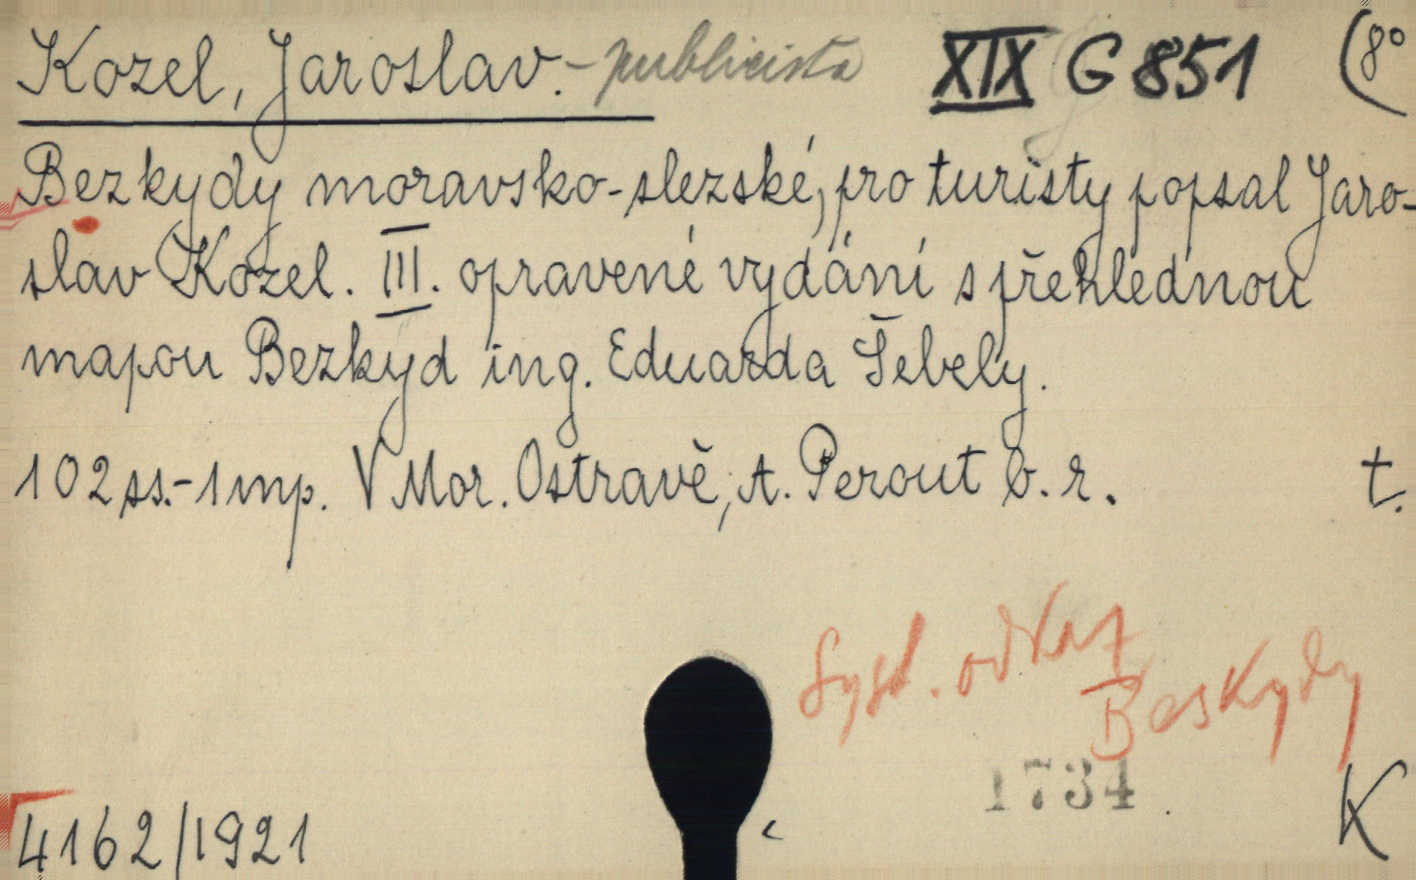 Kozel, Jaroslav. - publicista XIX G 851 (8°
Bezkydy moravsko-slezské, pro turisty popsal Jaro-
slav Kozel. III. opravené vydání s přehlednou
mapou Bezkyd ing. Eduarda Šebely.
102 ss.-1 mp. V Mor. Ostravě, A. Perout b. r. t.
Syst. odkaz
Beskydy
1734
4162/1921 K